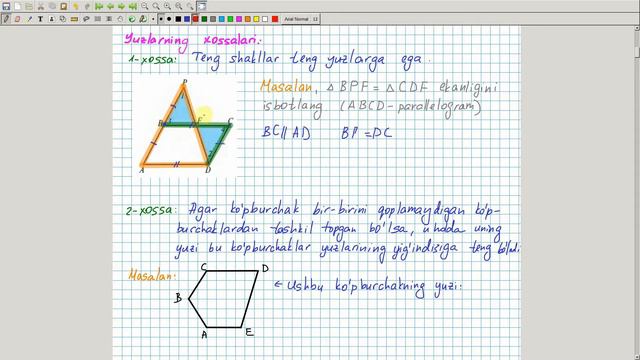 Yuzlarning xossalari:
1-xossa: Teng shakllar teng yuzlarga ega.
P
B F C
A D
Masalan, △BPF = △CDF ekanligini
isbotlang (ABCD-parallelogram)
BC∥AD BP=DC
2-xossa: Agar ko'pburchak bir-birini qoplamaydigan ko'p-
burchaklardan tashkil topgan bo'lsa, u holda uning
yuzi bu ko'pburchaklar yuzlarining yig'indisiga teng bo'ladi.
Masalan:
C D
← Ushbu ko'pburchakning yuzi:
B
A E